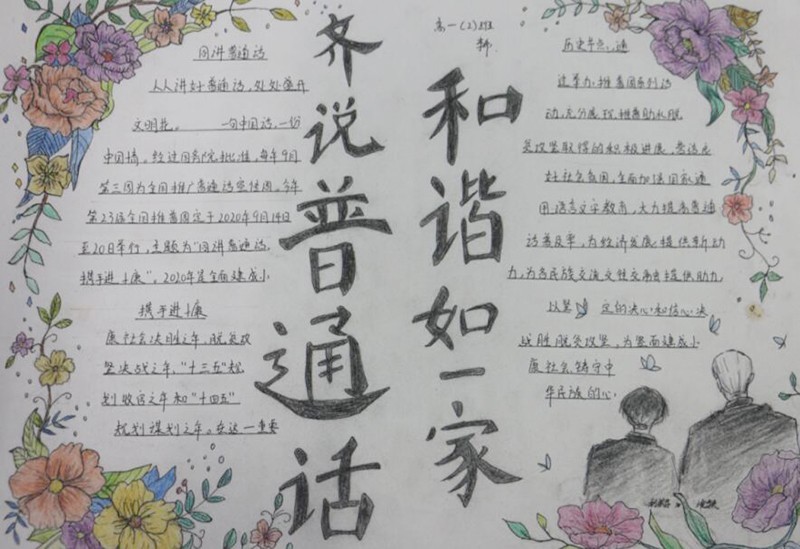 齐说普通话
和谐如一家
高一(2)班
同讲普通话
人人讲好普通话,处处盛开
文明花。 一句中国话,一份
中国情。经过国务院批准,每年9月
第三周为全国推广普通话宣传周。今年
第23届全国推普周定于2020年9月14日
至20日举行,主题为“同讲普通话,
携手进小康”。2020年是全面建成小
携手进小康
康社会决胜之年,脱贫攻
坚决战之年,“十三五”规
划收官之年和“十四五”
规划谋划之年。在这一重要
历史节点,通
过举办推普周系列活
动,充分展现推普助力脱
贫攻坚取得的积极进展,营造良
好社会氛围,全面加强国家通
用语言文字教育,大力提高普通
话普及率,为经济发展提供新动
力,为各民族交流交往交融提供助力,
以坚 定的决心和信心决
战胜脱贫攻坚,为全面建成小
康社会铸守中
华民族的心。